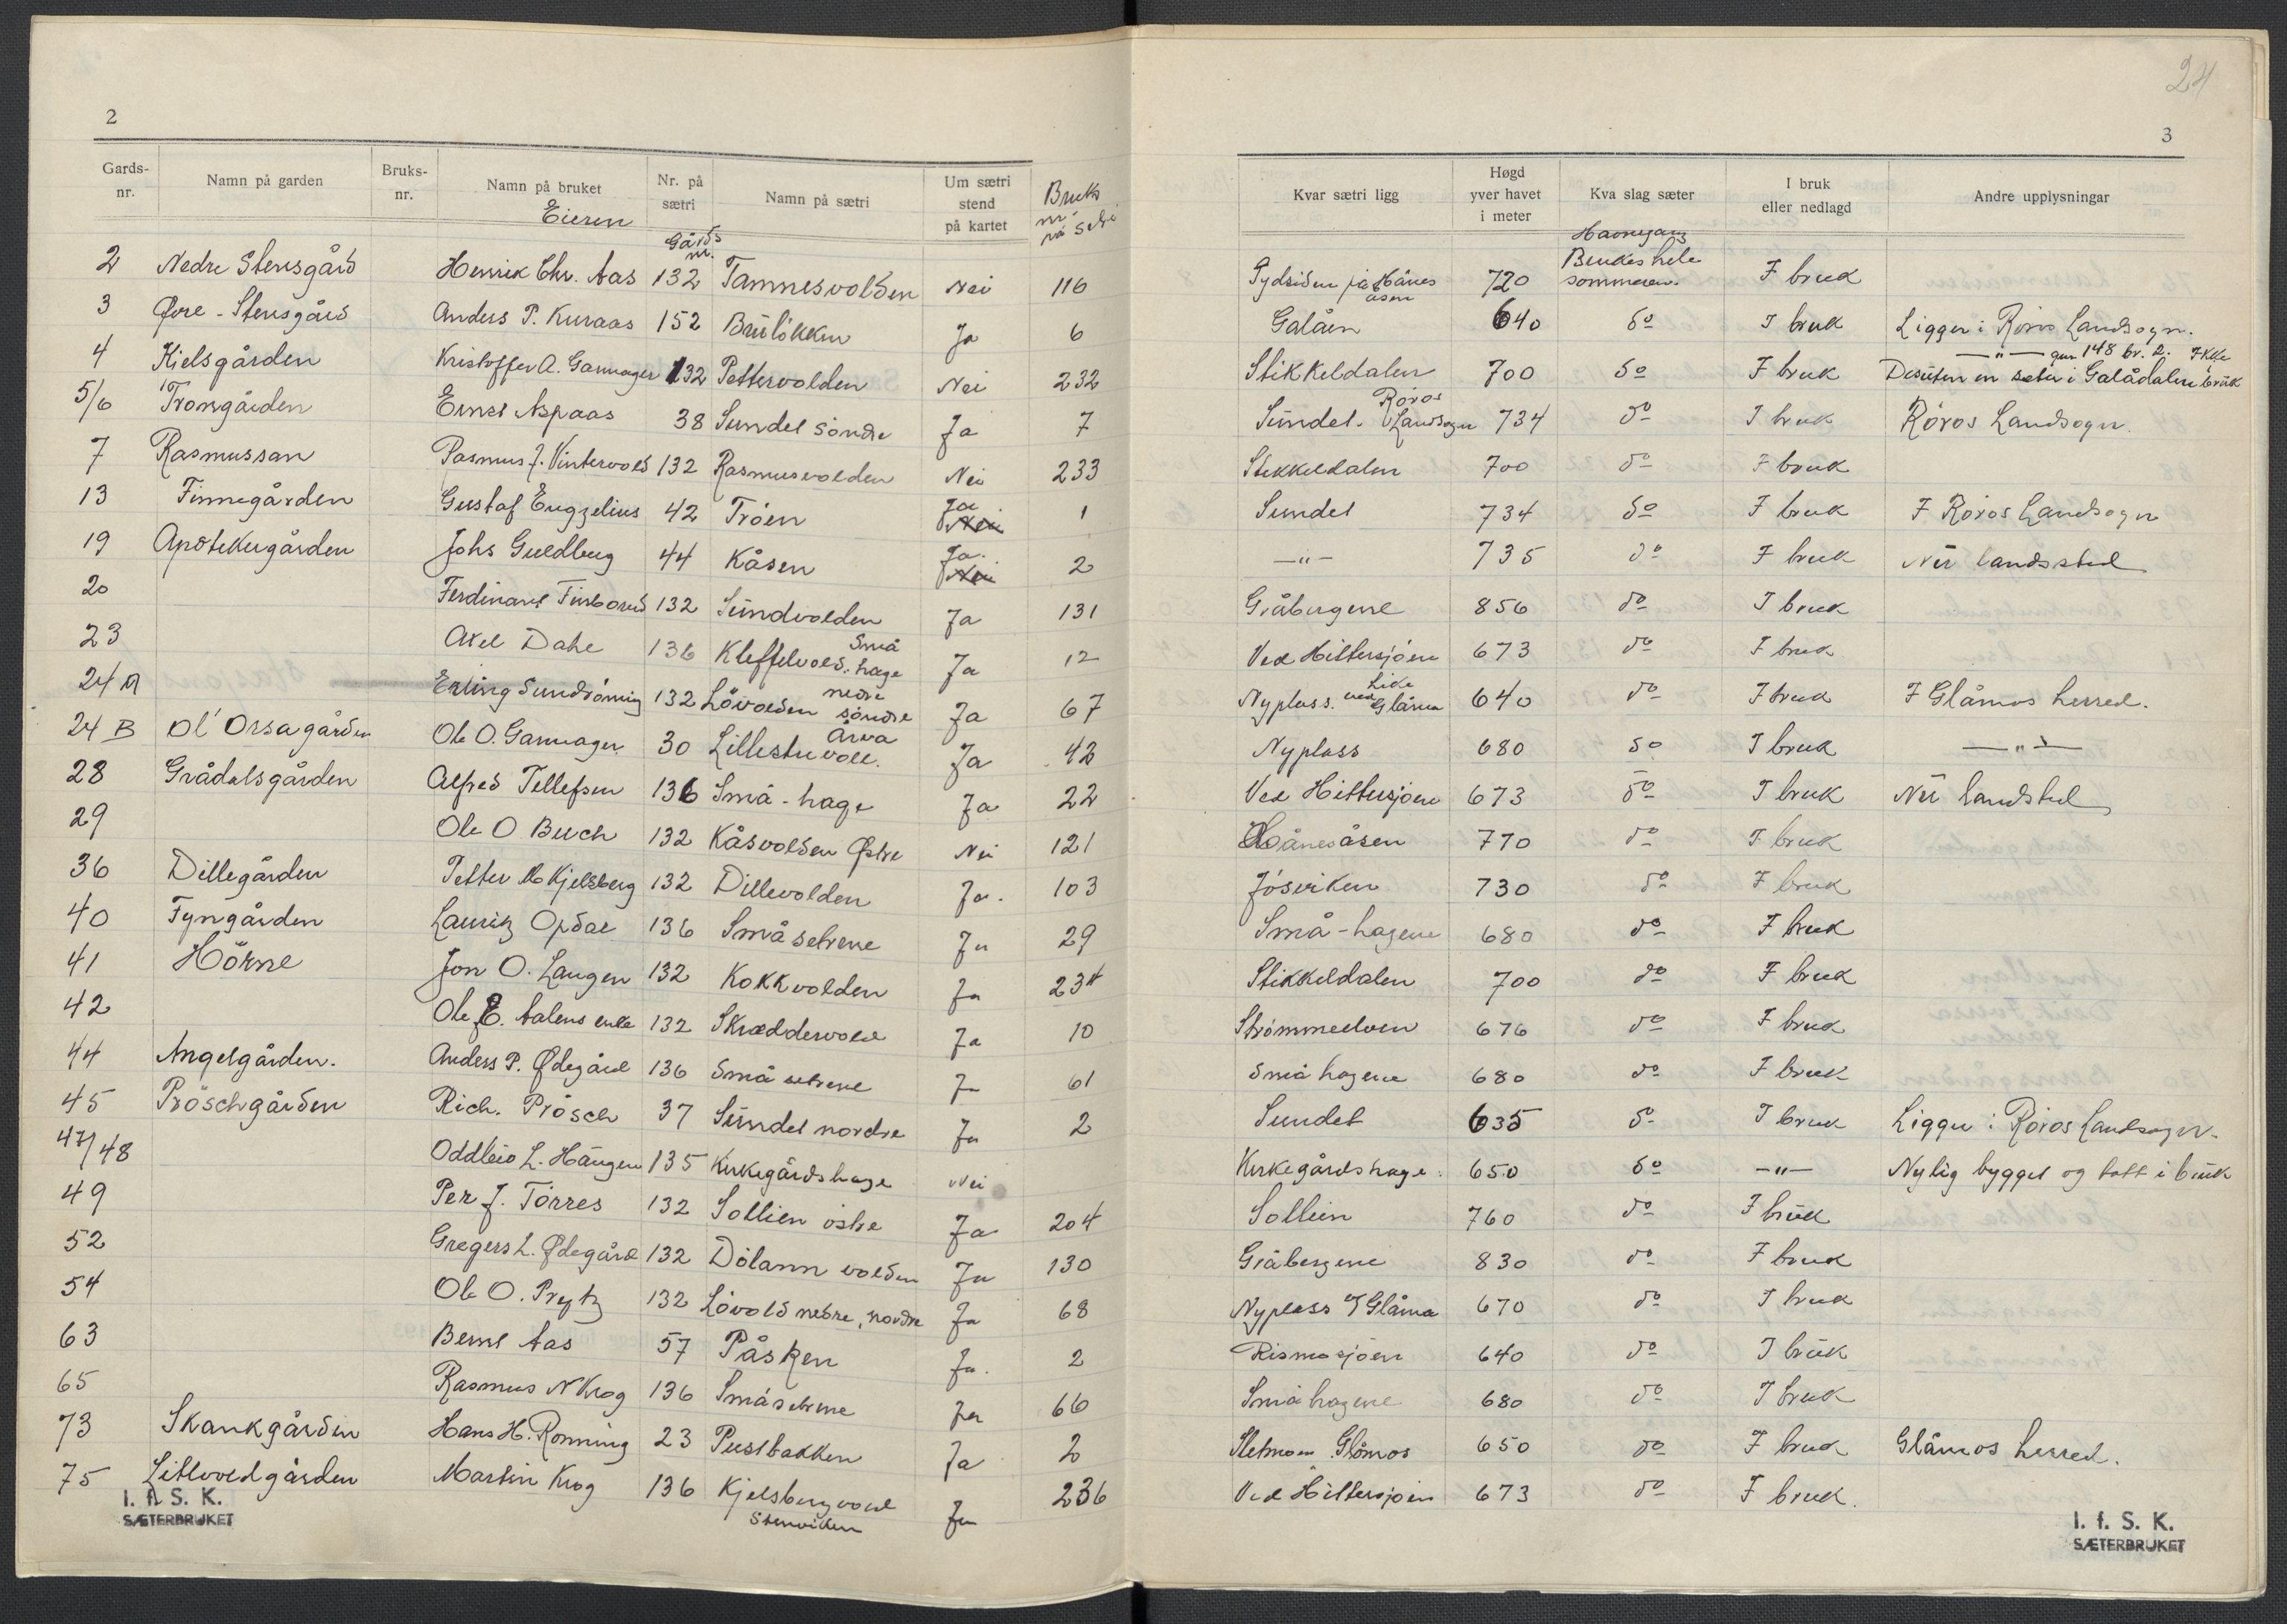 24
2
3
Gards-nr. Namn på garden Bruks-nr. Namn på bruket Nr. på sætri Namn på sætri Um sætri stend på kartet Bruks nr. på Kvar sætri ligg Høgd yver havet i meter Kva slag sæter I bruk eller nedlagd Andre upplysningar
Eieren Gårds nr. Havnegang
2 Nedre Stensgård Henrik Chr. Aas 132 Tamnesvolden Nei 116 Sydsiden på Hånesåsen 720 Brukes hele sommeren. I bruk
3 Øvre - Stensgård Anders P. Kuraas 152 Brulökken Ja 6 Galåen 640 do I bruk Ligger i Röros Landsogn.
4 Kjelsgården Kristoffer A. Galåen 132 Pettervolden Nei 232 Stikkeldalen 700 do I bruk —"— gnr 148 br. 2. Desuten en seter i Galådalen i bruk
5/6 Trongården Ernst Aspaas 38 Sundet söndre Ja 7 Sundet. Röros Landsogn 734 do I bruk Röros Landsogn.
7 Rasmussan Rasmus J. Vintervold 132 Rasmusvolden Nei 233 Stikkeldalen 700 do I bruk
13 Finnegården Gustaf Engzelius 42 Tröen Ja Nei 1 Sundet 734 do I bruk I Röros Landsogn
19 Apotekergården Johs Guldberg 44 Kåsen Ja. Nei 2 —"— 735 do I bruk Nu landsted
20 Ferdinand Finborud 132 Sundvolden Ja 131 Gråbergene 856 do I bruk
23 Axel Dahl 136 Kleffelvold. Småhage Ja 12 Ved Hittersjöen 673 do I bruk
24 A Erling Sundrönning 132 Lövolden nedre söndre Ja 67 Nyplass. Like ved Glåma 640 do I bruk I Glåmos herred.
24 B Ol'Orsagården Ole O. Galåen 30 Lillestuvoll. Årva Ja 42 Nyplass 680 do I bruk —"—
28 Grådalsgården Alfred Tellefsen 136 Små - hage Ja 22 Ved Hittersjöen 673 do I bruk Nu landsted
29 Ole O Buch 132 Kåsvolden Østre Nei 121 Hånesåsen 770 do I bruk
36 Dillegården Petter M Kjelsberg 132 Dillevolden Ja. 103 Jösviken 730 do I bruk
40 Fyngården Lauritz Opdal 136 Småsetrene Ja 29 Små - hagene 680 do I bruk
41 Hörne Jon O. Langen 132 Kokkvolden Ja 234 Stikkeldalen 700 do I bruk
42 Ole E. Aalens enke 132 Skreddervold Ja 10 Strömmeelven 676 do I bruk
44 Angelgården. Anders P. Ødegård 136 Små setrene Ja 61 Små hagene 680 do I bruk
45 Pröschgården Rich. Prösch 37 Sundet nordre Ja 2 Sundet 635 do I bruk Ligger i Röros Landsogn.
47/48 Oddleiv L. Haugen 135 Kirkegårdshage Nei Kirkegårdshage. 650 do —"— Nylig bygget og tatt i bruk
49 Per J. Törres 132 Sollien östre Ja 204 Sollien 760 do I bruk
52 Gregers L. Ødegård 132 Dölannvolden Ja 130 Gråbergene 830 do I bruk
54 Ole O. Prytz 132 Lövold nedre, nordre Ja 68 Nyplass v/ Glåma 670 do I bruk
63 Bernt Aas 57 Påsken Ja. 2 Rismosjöen 640 do I bruk
65 Rasmus N Krog 136 Småsetrene Ja 66 Småhagene 680 do I bruk
73 Skankgården Hans H. Rönning 23 Pustbakken Ja 2 Sletmoen Glåmos 650 do I bruk Glåmos herred.
75 Litlvoldgården Martin Krog 136 Kjelsbergvold Stenviken Ja 236 Ved Hittersjöen 673 do I bruk.
I. f. S. K.
SÆTERBRUKET
I. f. S. K.
SÆTERBRUKET